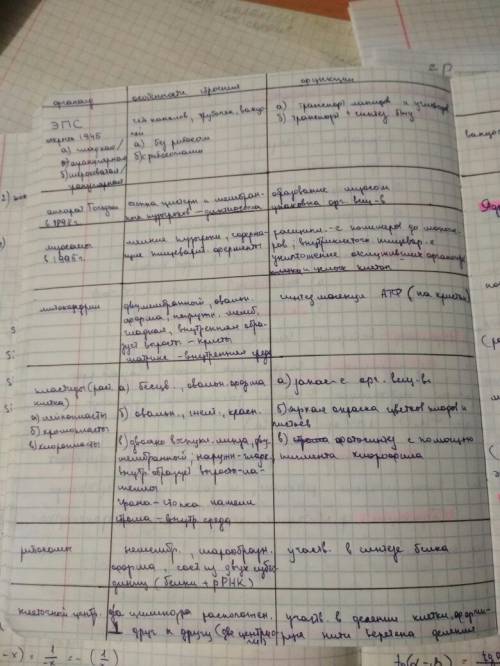 органоид особенности строения функции
ЭПС
открыт 1945
а) гладкая/
агранулярная
б) шероховатая/
гранулярная
сеть каналов, трубочек, вакуо
лей
а) без рибосом
б) с рибосомами
а) транспорт липидов и углеводов
б) транспорт + синтез
аппарат Гольджи
в 1898 г.
сетка цистерн и мембран-
ных пузырьков
образование лизосом
упаковка орг. вещ-в
лизосомы
в 1955 г.
мелкие пузырьки, содержа-
щие пищеварит. ферменты
расщепл-е
ров; внутриклеточн. пищевар-е
уничтожение
клетки и целых клеток
митохондрии
двумембранный, овальн.
форма, наружн. мемб.
гладкая, внутренняя обра-
зует выросты - кристы
матрикс - внутренняя среда
синтез молекул АТФ (на кристах)
пластиды (раст.
клетка)
а) лейкопласты
б) хромопласты
в) хлоропласты
а) бесцв., овальн. форма
б) овальн., красн.
в) двояко выпукл. линза, дву
мембранный; наружн - гладк.,
внутр образует выросты-ла-
меллы
грана - стопка
строма - внутр среда
а) запас-е орг. вещ-в
б) яркая окраска цветков плодов и
листьев
в) фотосинтез с помощью
пигмента хлорофилла
рибосомы
немембр., шарообразн.
форма, сост из двух субъе-
диниц (белки + рРНК)
участв. в синтезе белка
клеточный центр
два цилиндра расположен.
⊥ друг к другу (две центрио
ли)
участв. в делении клетки, формир-
нити веретена деления
2)
вакуо
S
S:
S:
(ра
-x) = 1/-x = -(1/x)